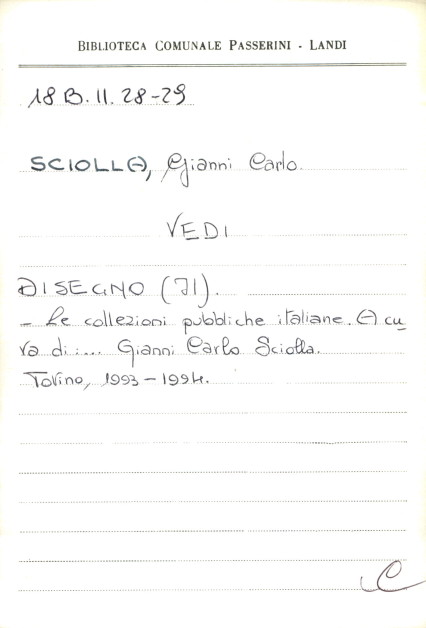 BIBLIOTECA COMUNALE PASSERINI - LANDI
18 B. II. 28-29
SCIOLLA, Gianni Carlo.
VEDI
DISEGNO (Il).
- Le collezioni pubbliche italiane. A cu
ra di:... Gianni Carlo Sciolla.
Torino, 1993-1994.
C